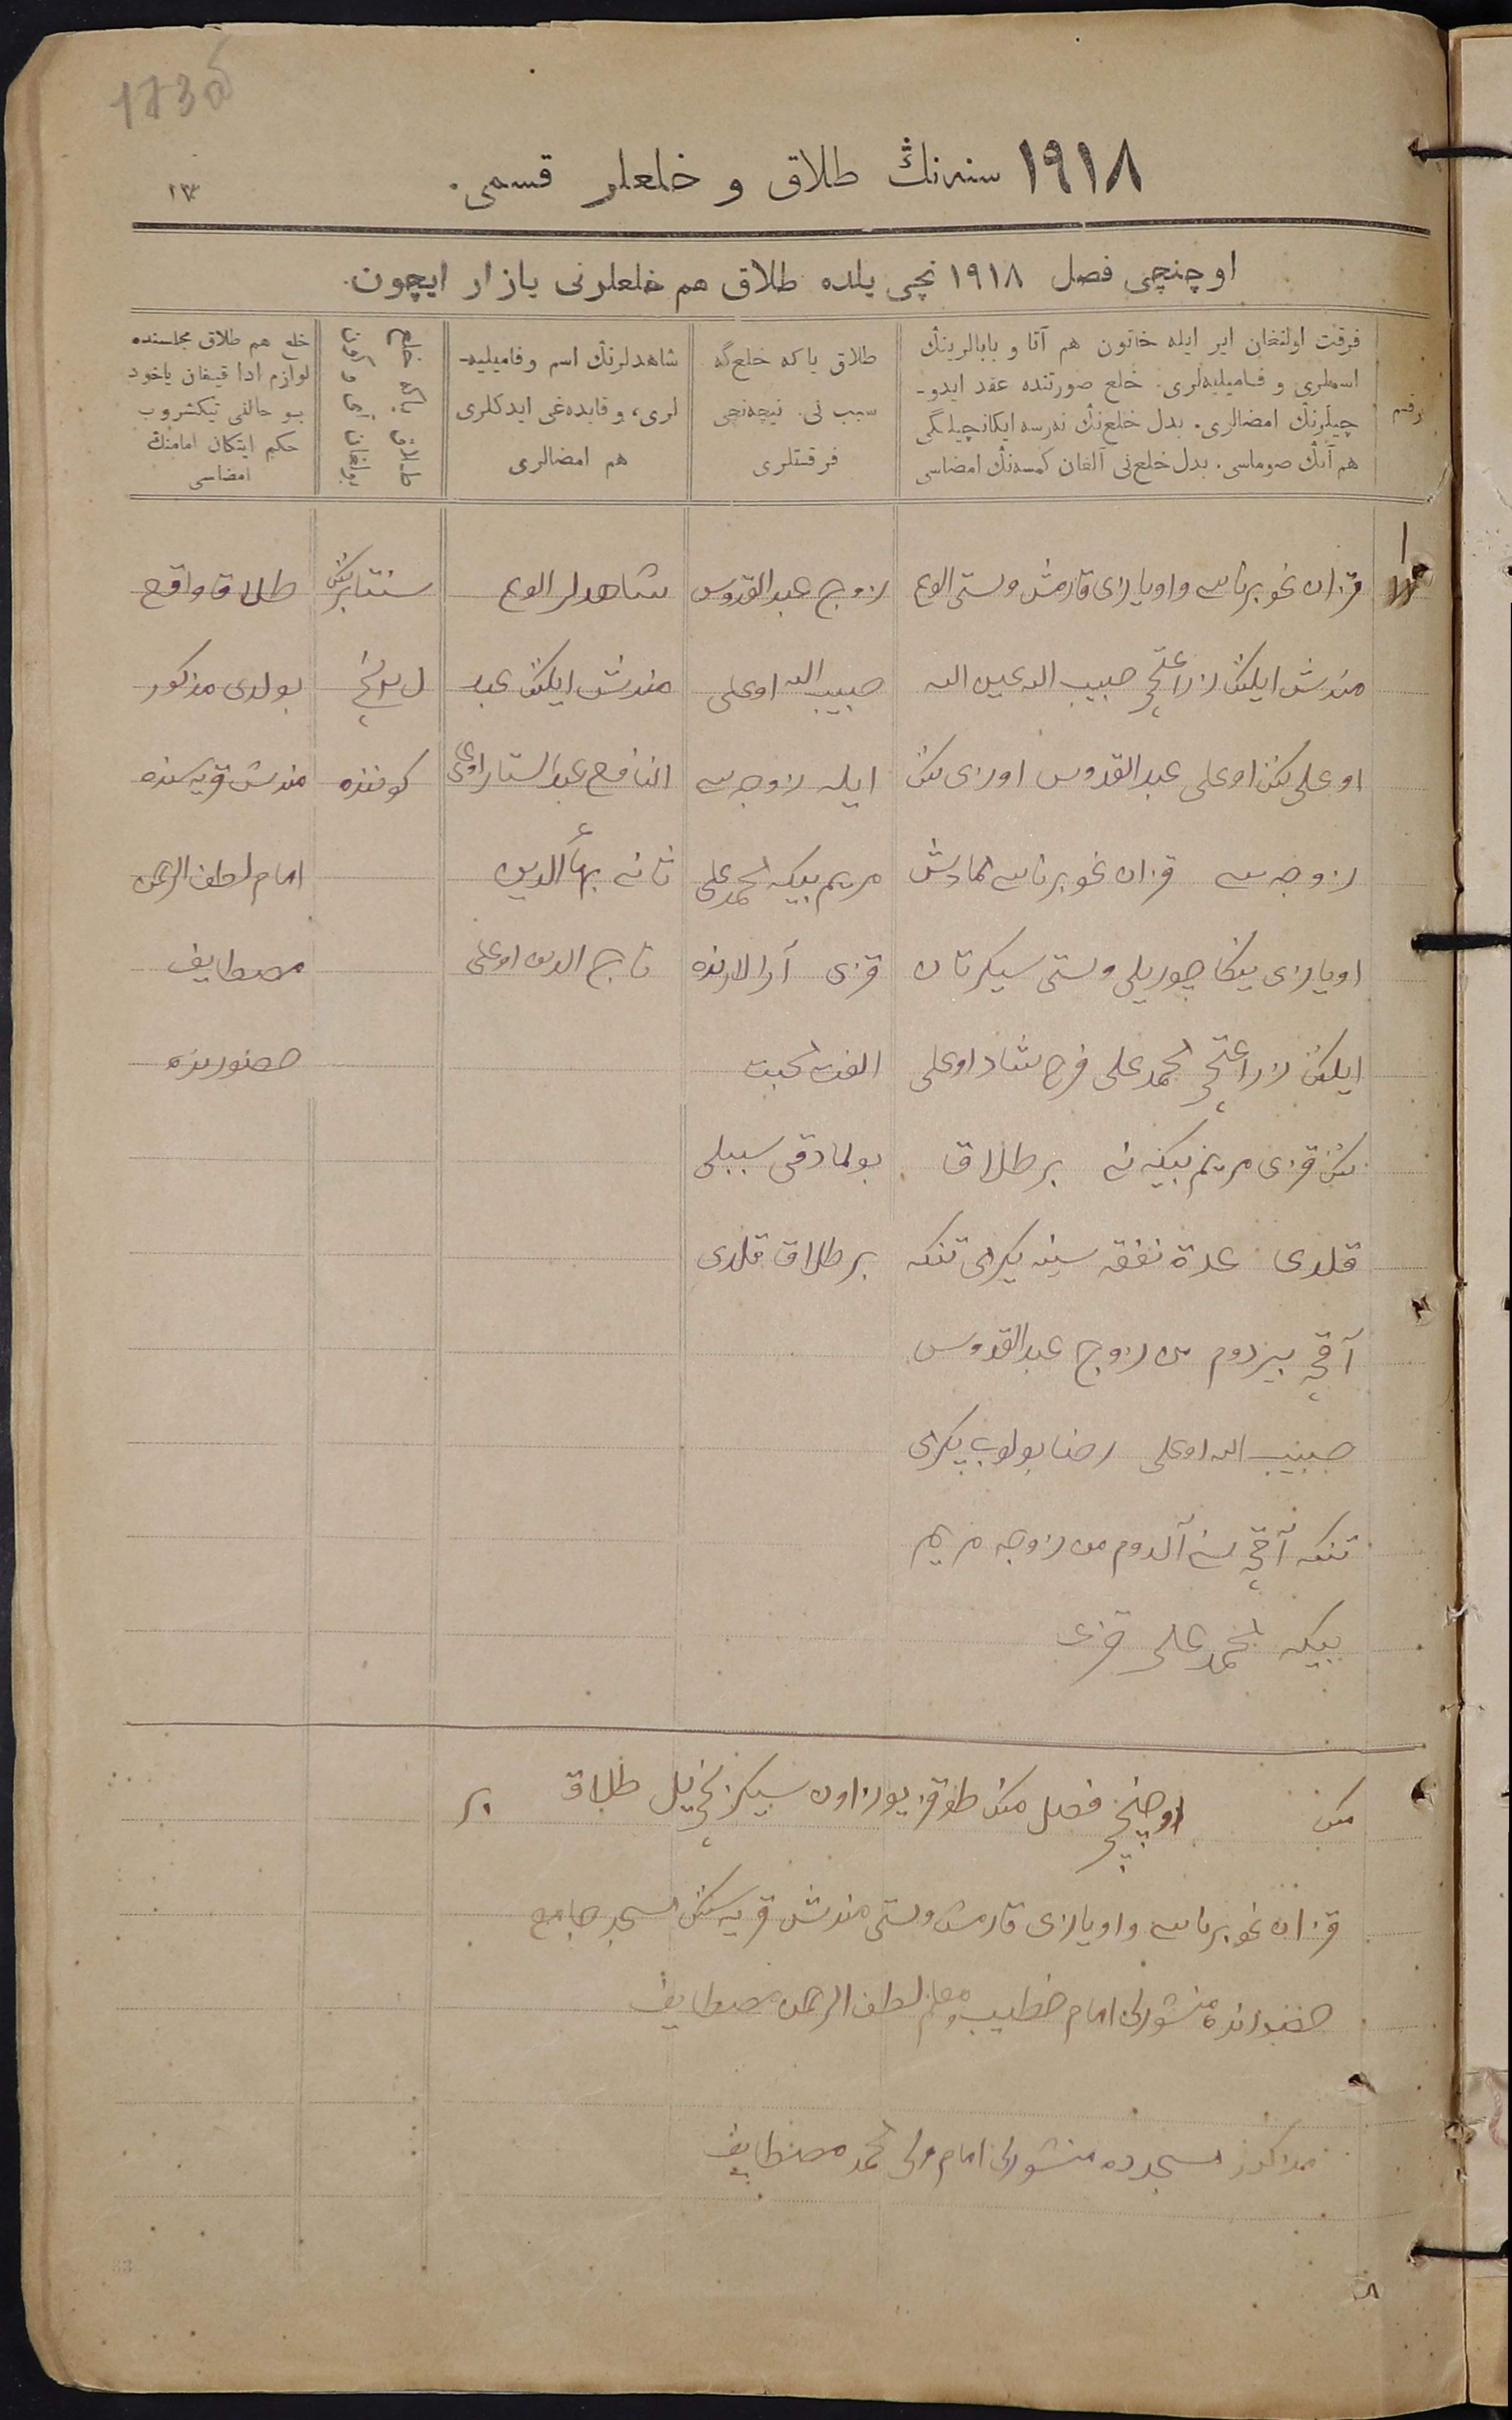 173
١٩١٨ سنەنڭ طلاق و خلعلر قسمی.
اوچنچی فصل ١٩١٨ نچی یلده طلاق هم خلعلرنی یازار ایچون.
رقم
فرقت اولنغان ایر ایله خاتون هم آتا و بابالرینڭ
اسملری و فامیلیەلری. خلع صورتنده عقد ایدو-
چیلرنڭ امضالری. بدل خلع‌نڭ نەرسه ایکانچیلگی
هم آنڭ صوماسی. بدل خلع‌نی آلغان کمسەنڭ امضاسی
طلاق یا که خلع‌گه
سبب نی. نیچەنچی
فرقتلری
شاهدلرنڭ اسم وفامیلیه-
لری، و قایدەغی ایدکلری
هم امضالری
طلاق یاکه خلع
بولغان آی و کون
خلع هم طلاق مجلسنده
لوازم ادا قیغان یاخود
بو حالنی تیکشروب
حکم ایتکان امامنڭ
امضاسی
١
قزان غوبرناسی واویازی قارمش ولستی الوغ
مندش ایلینڭ زراعتچی حبیب الله عین الله
اوغلی ننڭ اوغلی عبدالقدوس اوزی ننڭ
زوجه سی قزان غوبرناسی لمادش
اویازی ولستی سیکرتان
ایلینڭ زراعتچی محمدعلی فرح شاد اوغلی
ننڭ قزی مریم بیکه نی بر طلاق
قلدی عدة نفقه سینه یکرمی تنکه
آقچه بیردوم من زوج عبدالقدوس
حبیب الله اوغلی رضا بولوب یکرمی
تنکه آقچه نی آلدوم من زوجه مریم
بیکه محمدعلی قزی
زوج عبدالقدوس
حبیب الله اوغلی
ایله زوجه سی
مریم بیکه محمدعلی
قزی آرالارنده
الفت محبت
بولمادقی سببلی
بر طلاق قلدی
شاهدلر الوغ
مندش ایلینڭ عبد
النافع عبدالستار اوغلی
ثانی بهاءالدین
تاج الدین اوغلی
سنتابرنڭ
کوننده
طلاق واقع
بولدی مذکور
مندش قریه سنده
امام لطف الرحمن
مصطایف
حضورنده
اوچنچی فصل منڭ طوقز یوز اون سیکزنچی یل طلاق بر
قزان غوبرناسی واویازی قارمش ولستی مندش قریه سننڭ مسجد جامع
حضورنده منشورلی امام خطیب ومعلم لطف الرحمن مصطایف
مذکور مسجدده منشورلی امام ولی محمد مصطایف